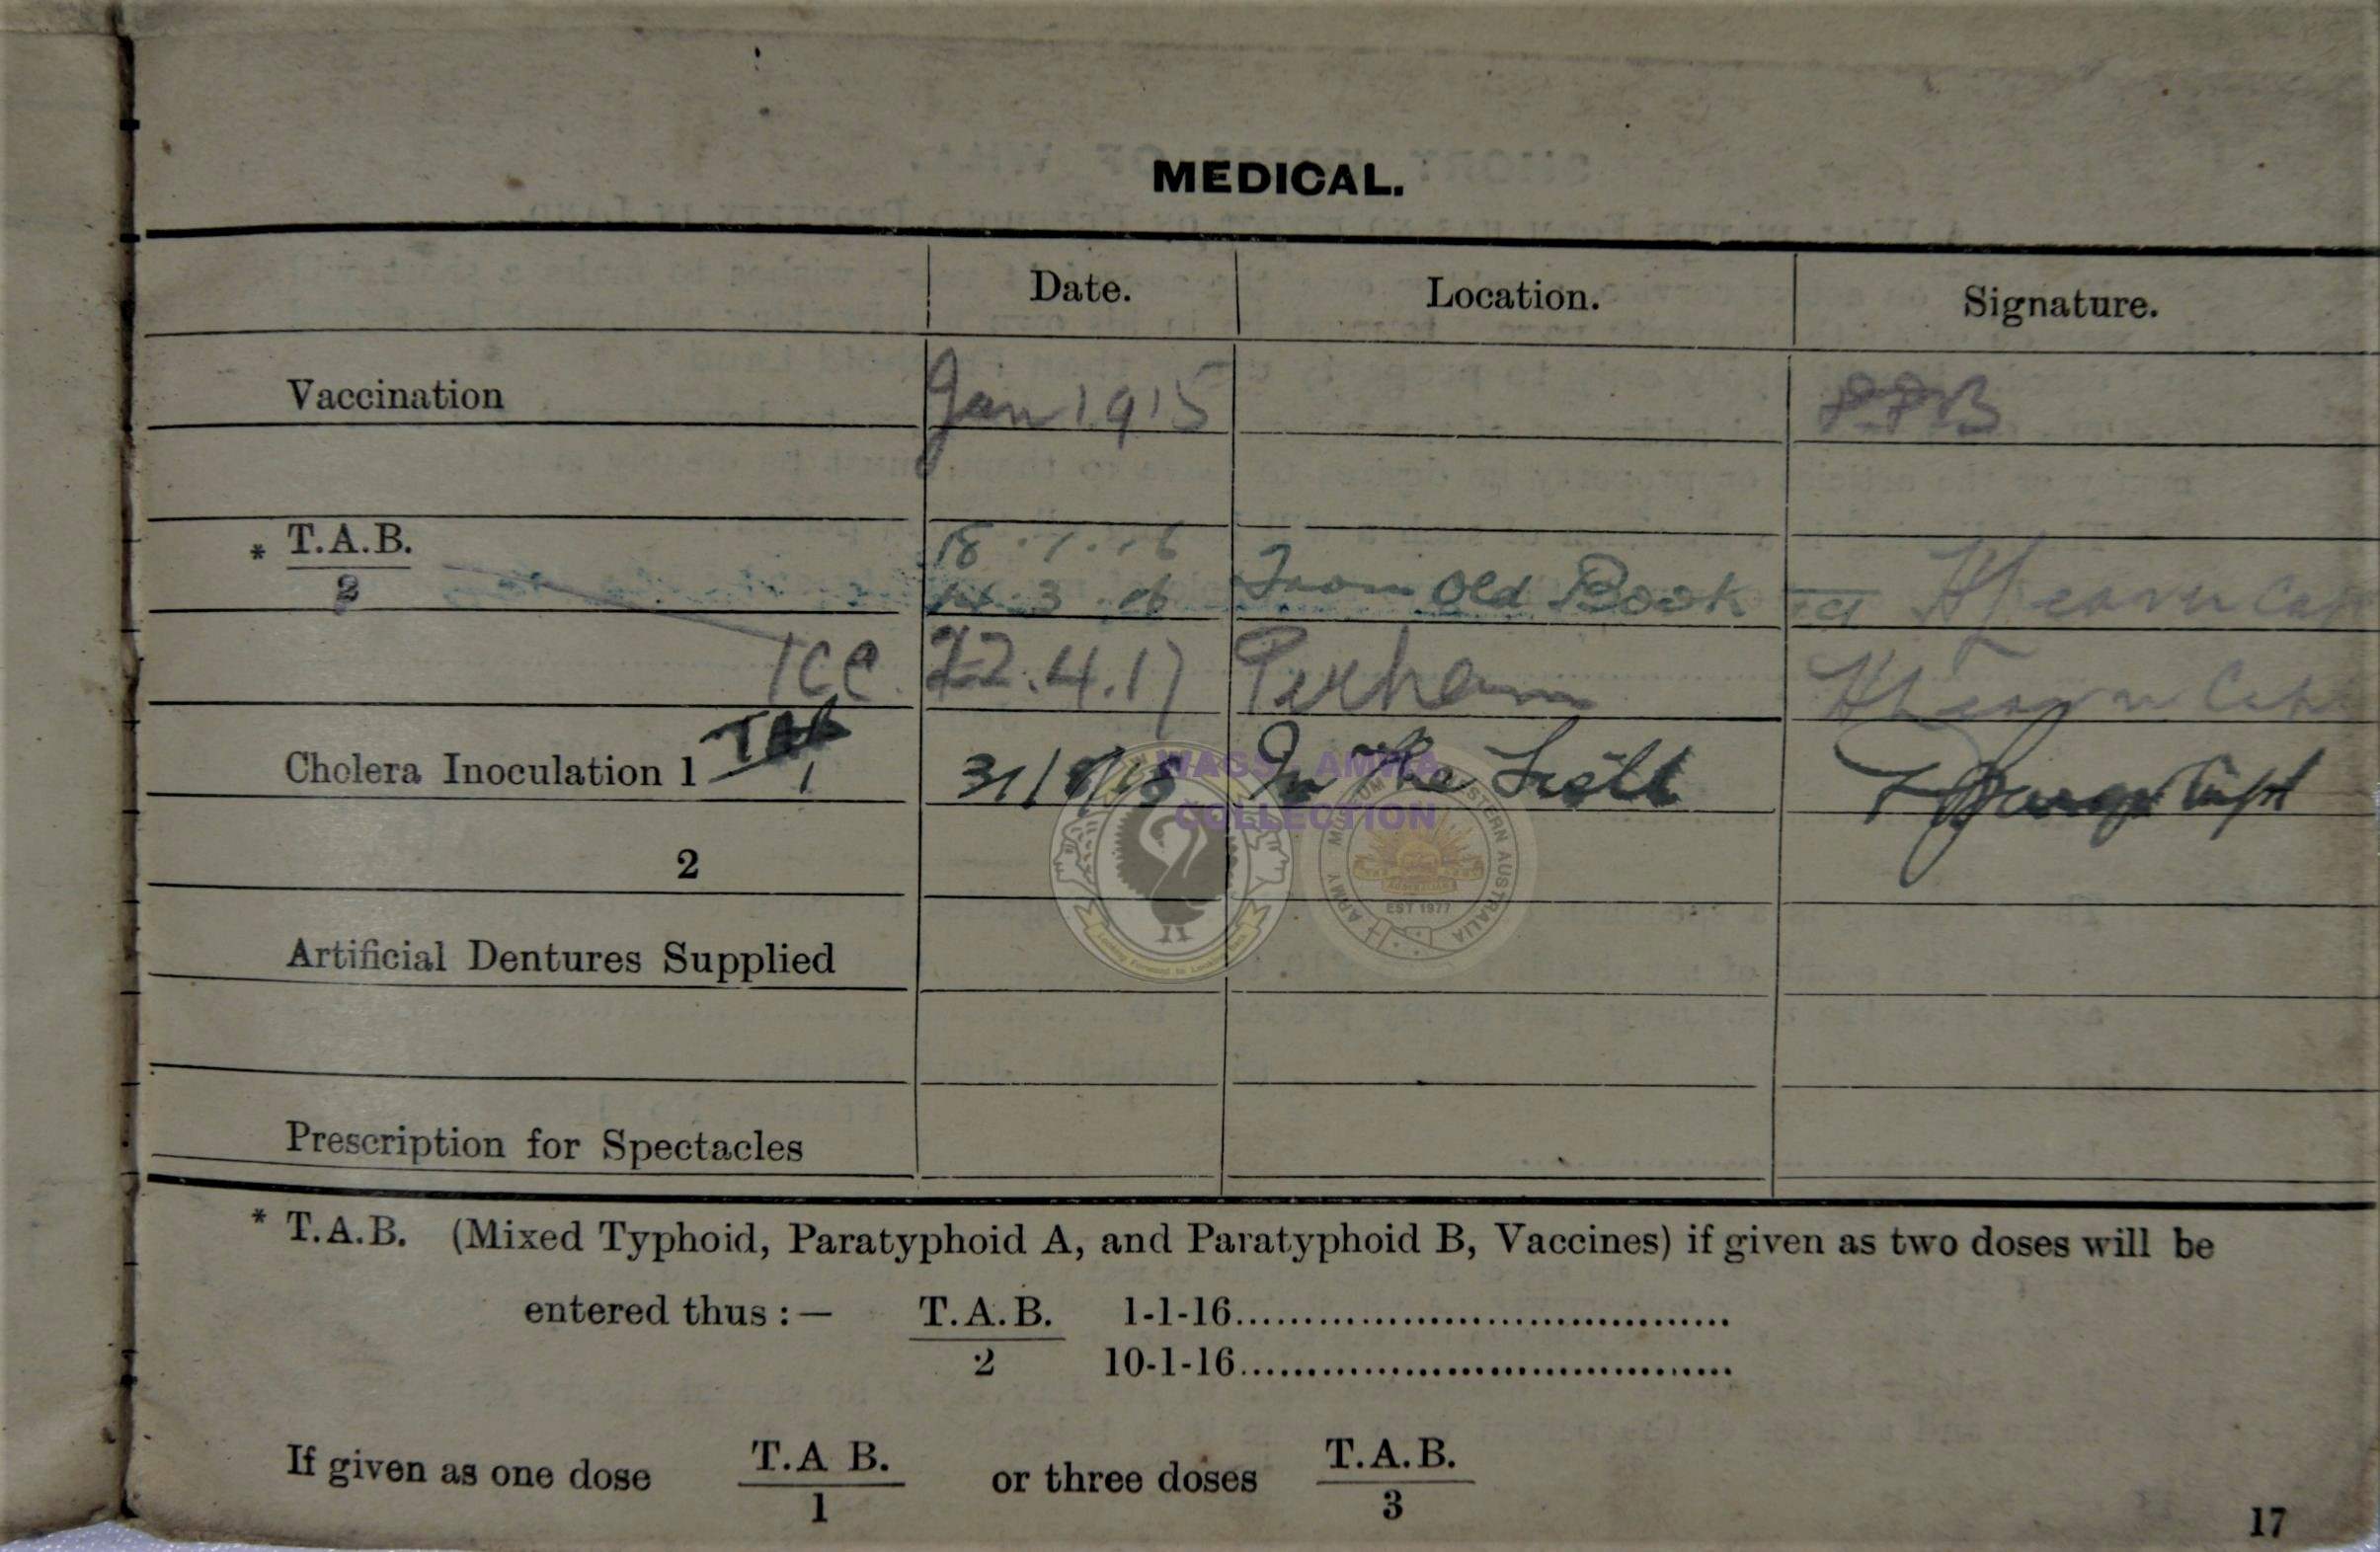 MEDICAL.
Date. Location. Signature.
Vaccination Jan 1915
* T.A.B. 18.1.16
2 3.16 From Old Book
22.4.17
Cholera Inoculation 1 TAB 31/ /18 In the Field Capt
1
2
Artificial Dentures Supplied
Prescription for Spectacles
* T.A.B. (Mixed Typhoid, Paratyphoid A, and Paratyphoid B, Vaccines) if given as two doses will be
entered thus :— T.A.B. 1-1-16
2 10-1-16
If given as one dose T.A B. or three doses T.A.B.
1 3
17
WAGS - AMWA
COLLECTION
ARMY MUSEUM WESTERN AUSTRALIA
EST 1977